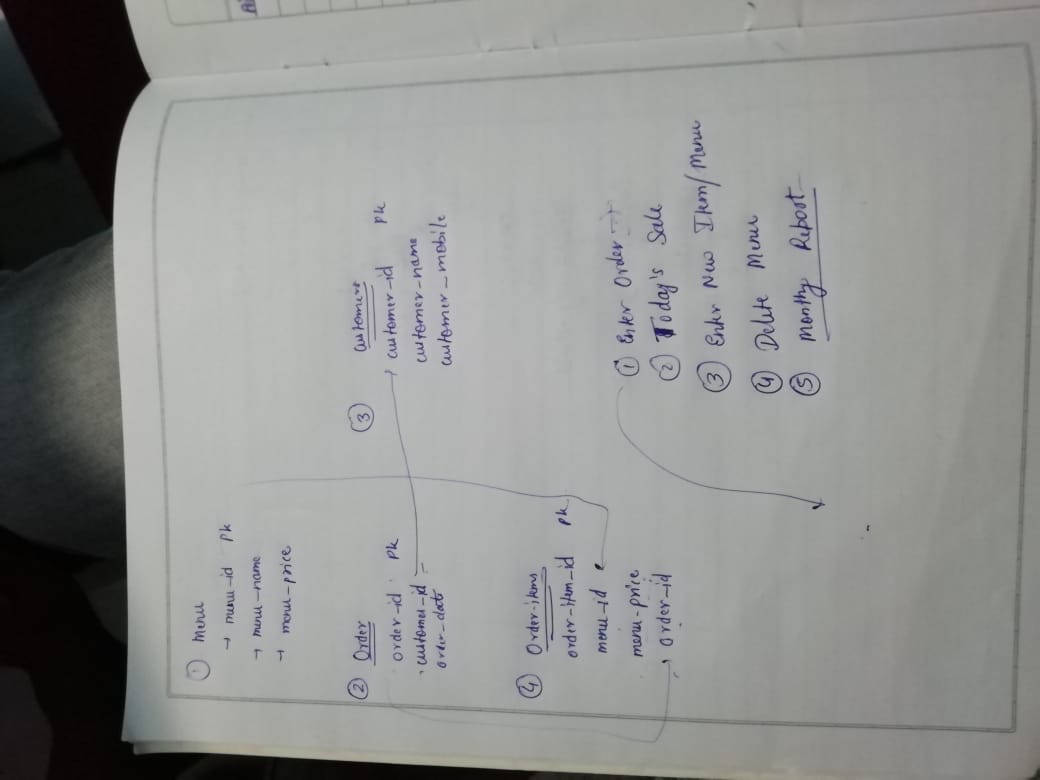 ① Menu
→ menu-id Pk
→ menu-name
→ menu-price
② Order
order-id Pk
customer-id
order-date
③ Customers
customer-id Pk
customer-name
customer-mobile
④ Order-items
order-item-id Pk
menu-id
menu-price
order-id
① Enter Order →
② Today's Sale
③ Enter New Item/Menu
④ Delete Menu
⑤ Monthy Report